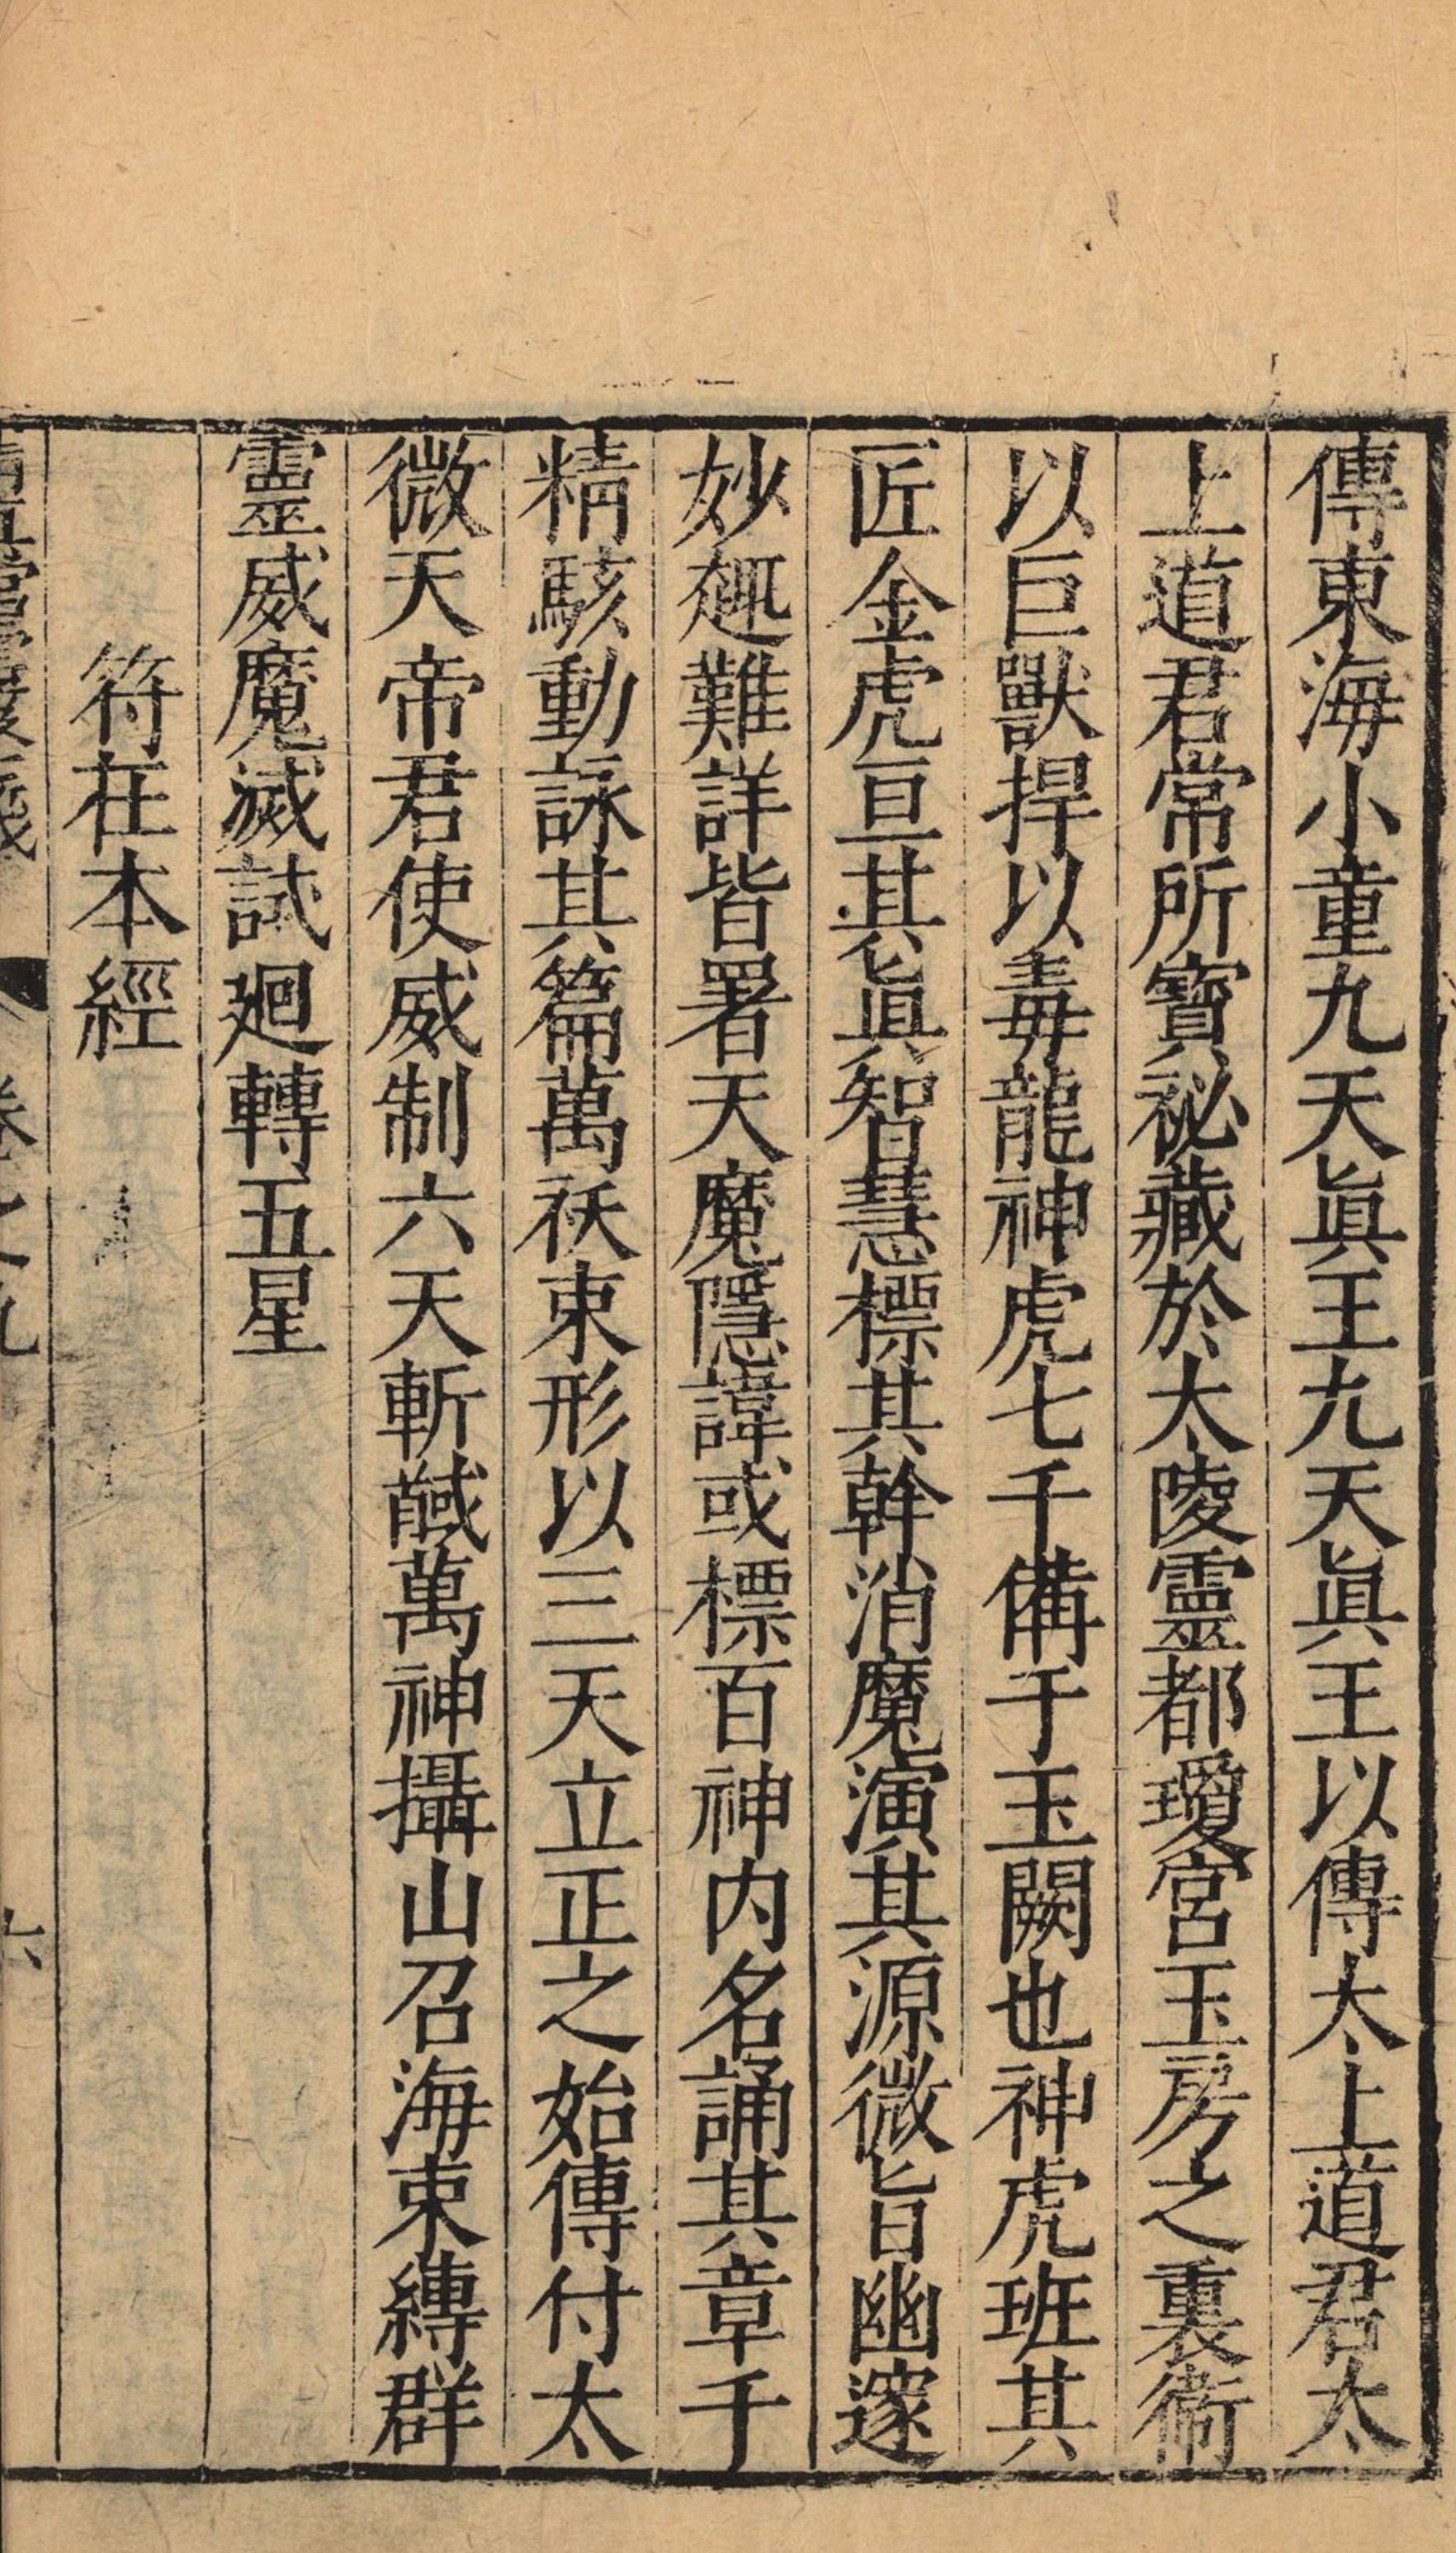 傳東海小童九天眞王九天眞王以傳太上道君太
上道君常所寶祕藏於太陵靈都瓊宮玉房之裏衛
以巨獸捍以毒龍神虎七千備于玉闕也神虎班其
匠金虎亘其眞智慧標其幹消魔演其源微旨幽邃
妙趣難詳皆署天魔隱諱或標百神内名誦其章千
精駭動詠其篇萬祅束形以三天立正之始傳付太
微天帝君使威制六天斬馘萬神攝山召海束縛群
靈威魔滅試廻轉五星
符在本經
卷之九
六